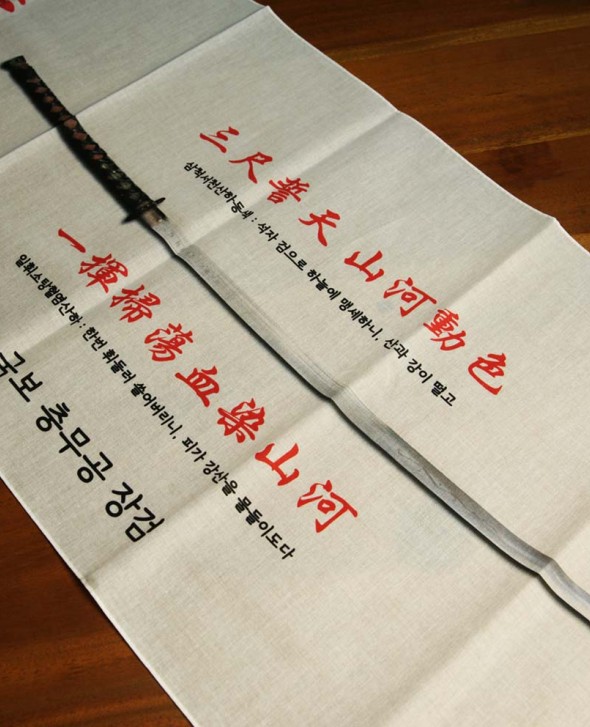 三尺誓天山河動色
삼척서천산하동색 : 석자 검으로 하늘에 맹세하니, 산과 강이 떨고
一揮掃蕩血染山河
일휘소탕혈염산하 : 한번 휘둘러 쓸어버리니, 피가 강산을 물들이도다
국보 충무공 장검